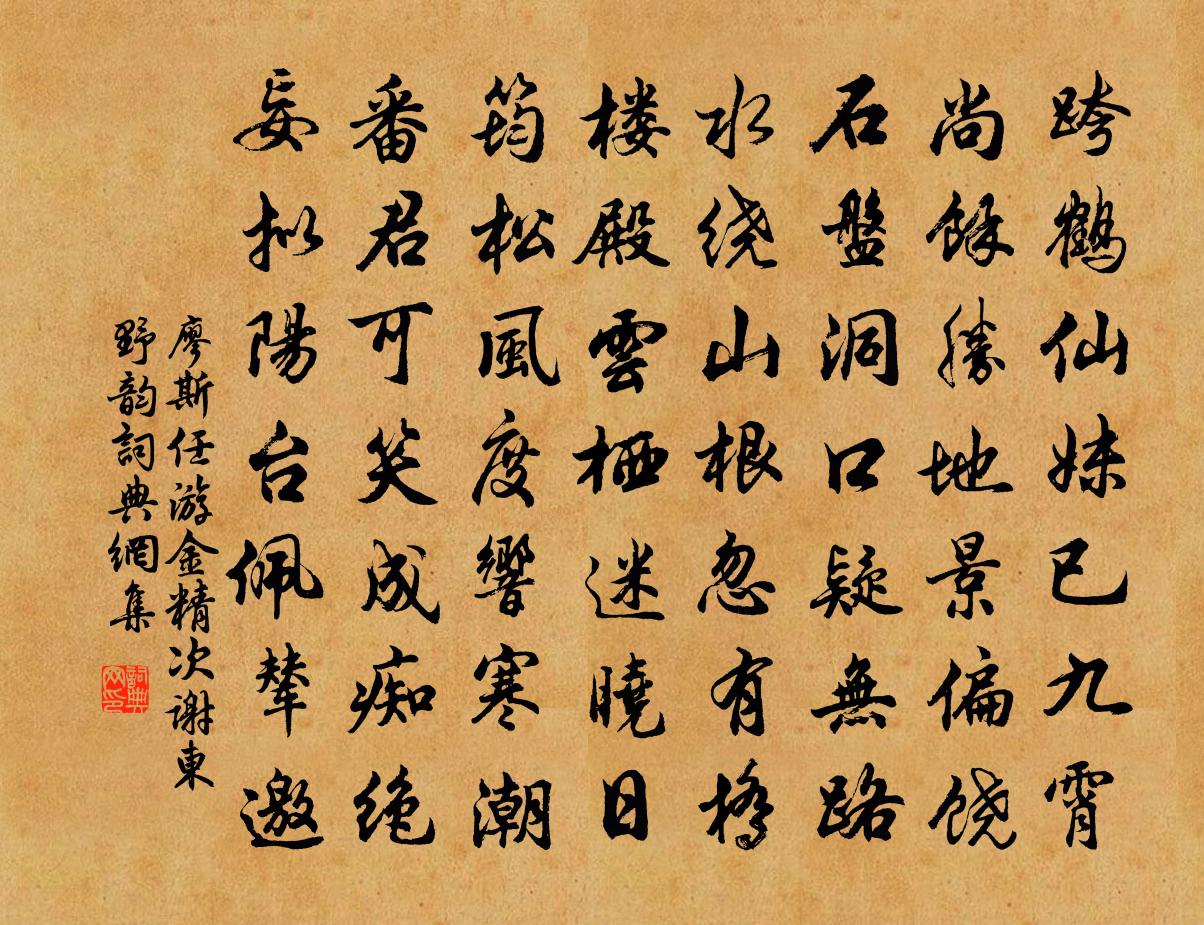 跨鹤仙妹已九霄
尚餘勝地景偏饶
石盤洞口疑無路
水绕山根忽有橋
楼殿雲栖迷曉日
筠松風度響寒潮
番君可笑成痴绝
妄拟陽台佩辇邀
廖斯任游金精次谢東
野韵詞典網集
詞典
网印